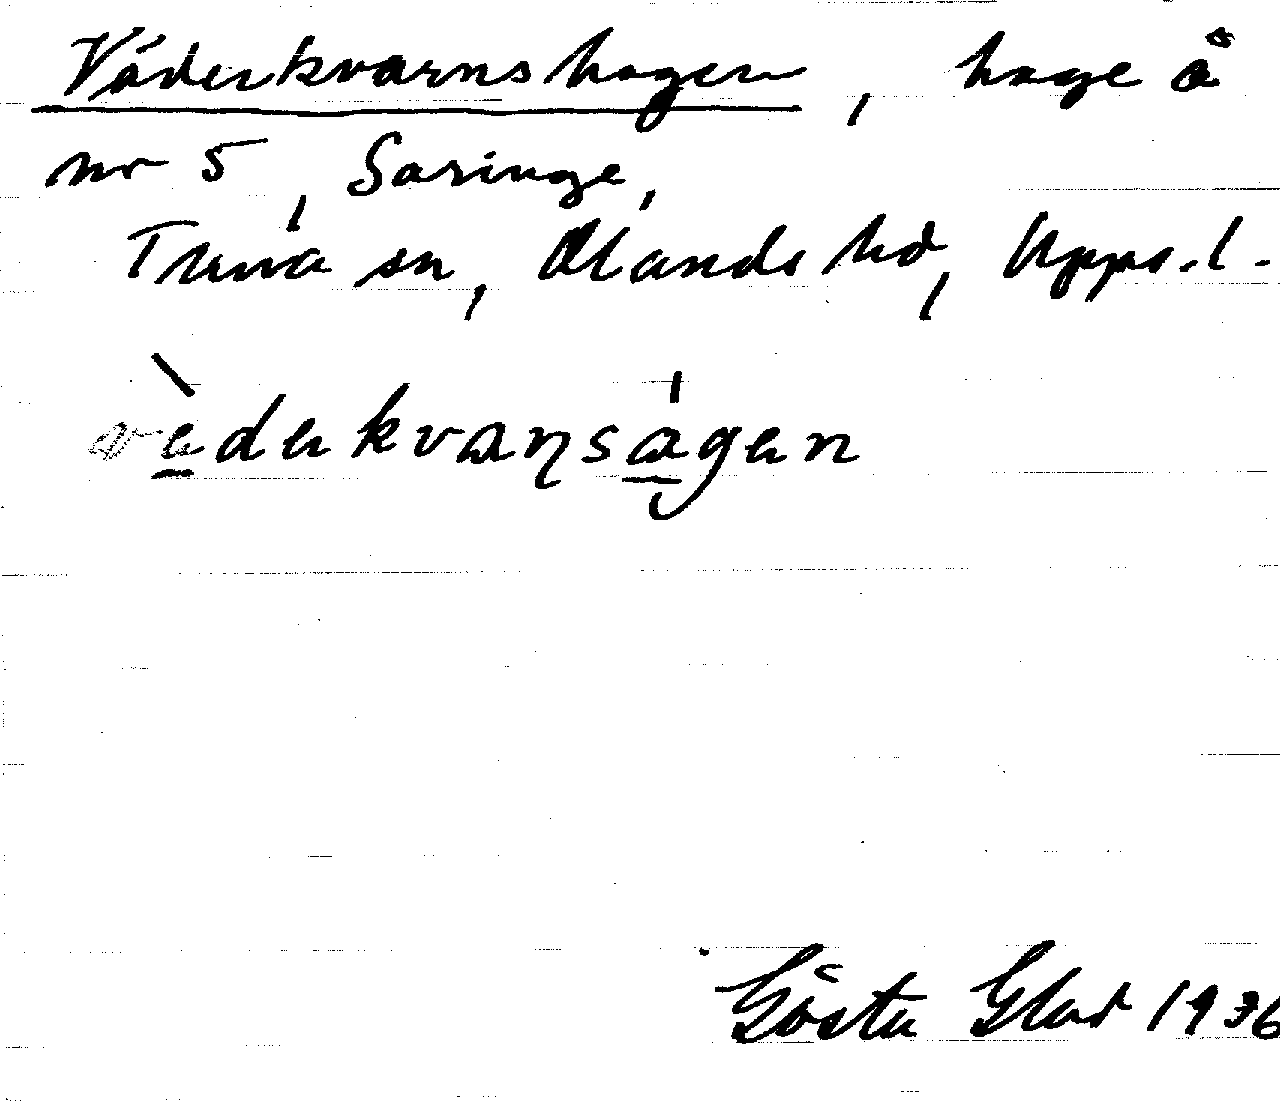 Väderkvarnshagen, hage å
nr 5, Saringe,
Tuna sn, Olands hd, Upps.l.
vèderkvaṇságen
Gösta Glad 1936